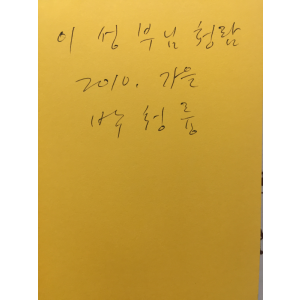 이 성 부 님 청람
2010. 가을
박 청 륭